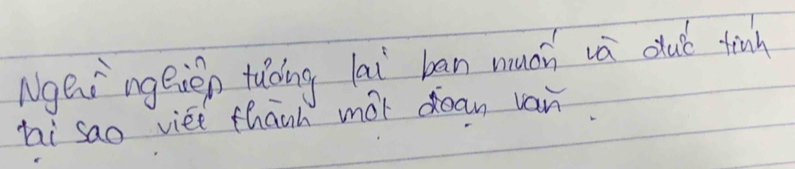 Nghề nghiệp tương lai bạn muốn và đức tính
tại sao viết thành một đoạn văn.